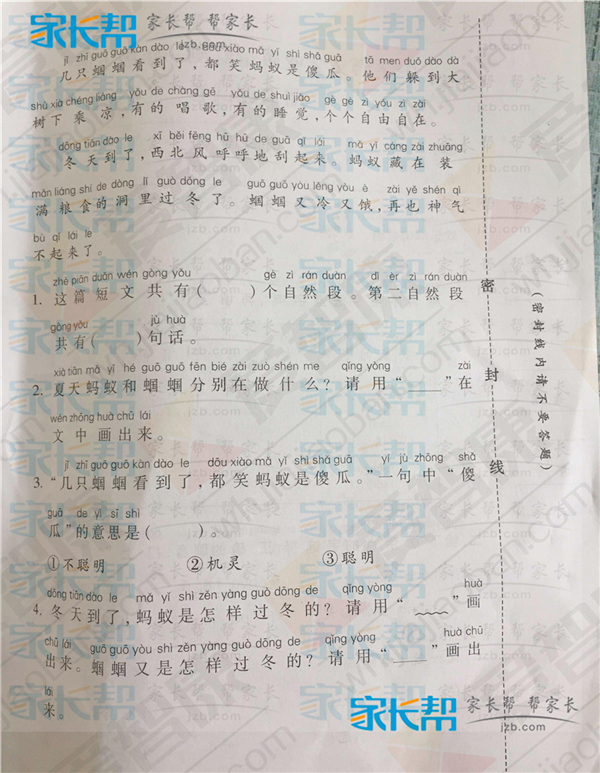 家长帮 家长帮 帮家长
jzb.com
jǐ zhī guō guō kàn dào le dōu xiào mǎ yǐ shì shǎ guā tā men duǒ dào dà
几只蝈蝈看到了，都笑蚂蚁是傻瓜。他们躲到大
shù xià chéng liáng yǒu de chàng gē yǒu de shuì jiào gè gè zì yóu zì zài
树下乘凉，有的唱歌，有的睡觉，个个自由自在。
dōng tiān dào le xī běi fēng hū hū de guā qǐ lái mǎ yǐ cáng zài zhuāng
冬天到了，西北风呼呼地刮起来。蚂蚁藏在装
mǎn liáng shi de dòng lǐ guò dōng le guō guō yòu lěng yòu è zài yě shén qì
满粮食的洞里过冬了。蝈蝈又冷又饿，再也神气
bù qǐ lái le
不起来了。
zhè piān duǎn wén gòng yǒu gè zì rán duàn dì èr zì rán duàn
1. 这篇短文共有( )个自然段。第二自然段
gòng yǒu jù huà
共有( )句话。
xià tiān mǎ yǐ hé guō guō fēn bié zài zuò shén me qǐng yòng zài
2. 夏天蚂蚁和蝈蝈分别在做什么？请用“____”在
wén zhōng huà chū lái
文中画出来。
jǐ zhī guō guō kàn dào le dōu xiào mǎ yǐ shì shǎ guā yī jù zhōng shǎ
3. “几只蝈蝈看到了，都笑蚂蚁是傻瓜。”一句中“傻
guā de yì si shì
瓜”的意思是( )。
①不聪明 ②机灵 ③聪明
dōng tiān dào le mǎ yǐ shì zěn yàng guò dōng de qǐng yòng huà
4. 冬天到了，蚂蚁是怎样过冬的？请用“﹏﹏”画
chū lái guō guō yòu shì zěn yàng guò dōng de qǐng yòng huà chū
出来。蝈蝈又是怎样过冬的？请用“____”画出
lái
来。
密封线
(密封线内请不要答题)
家长帮 家长帮 帮家长
jzb.com